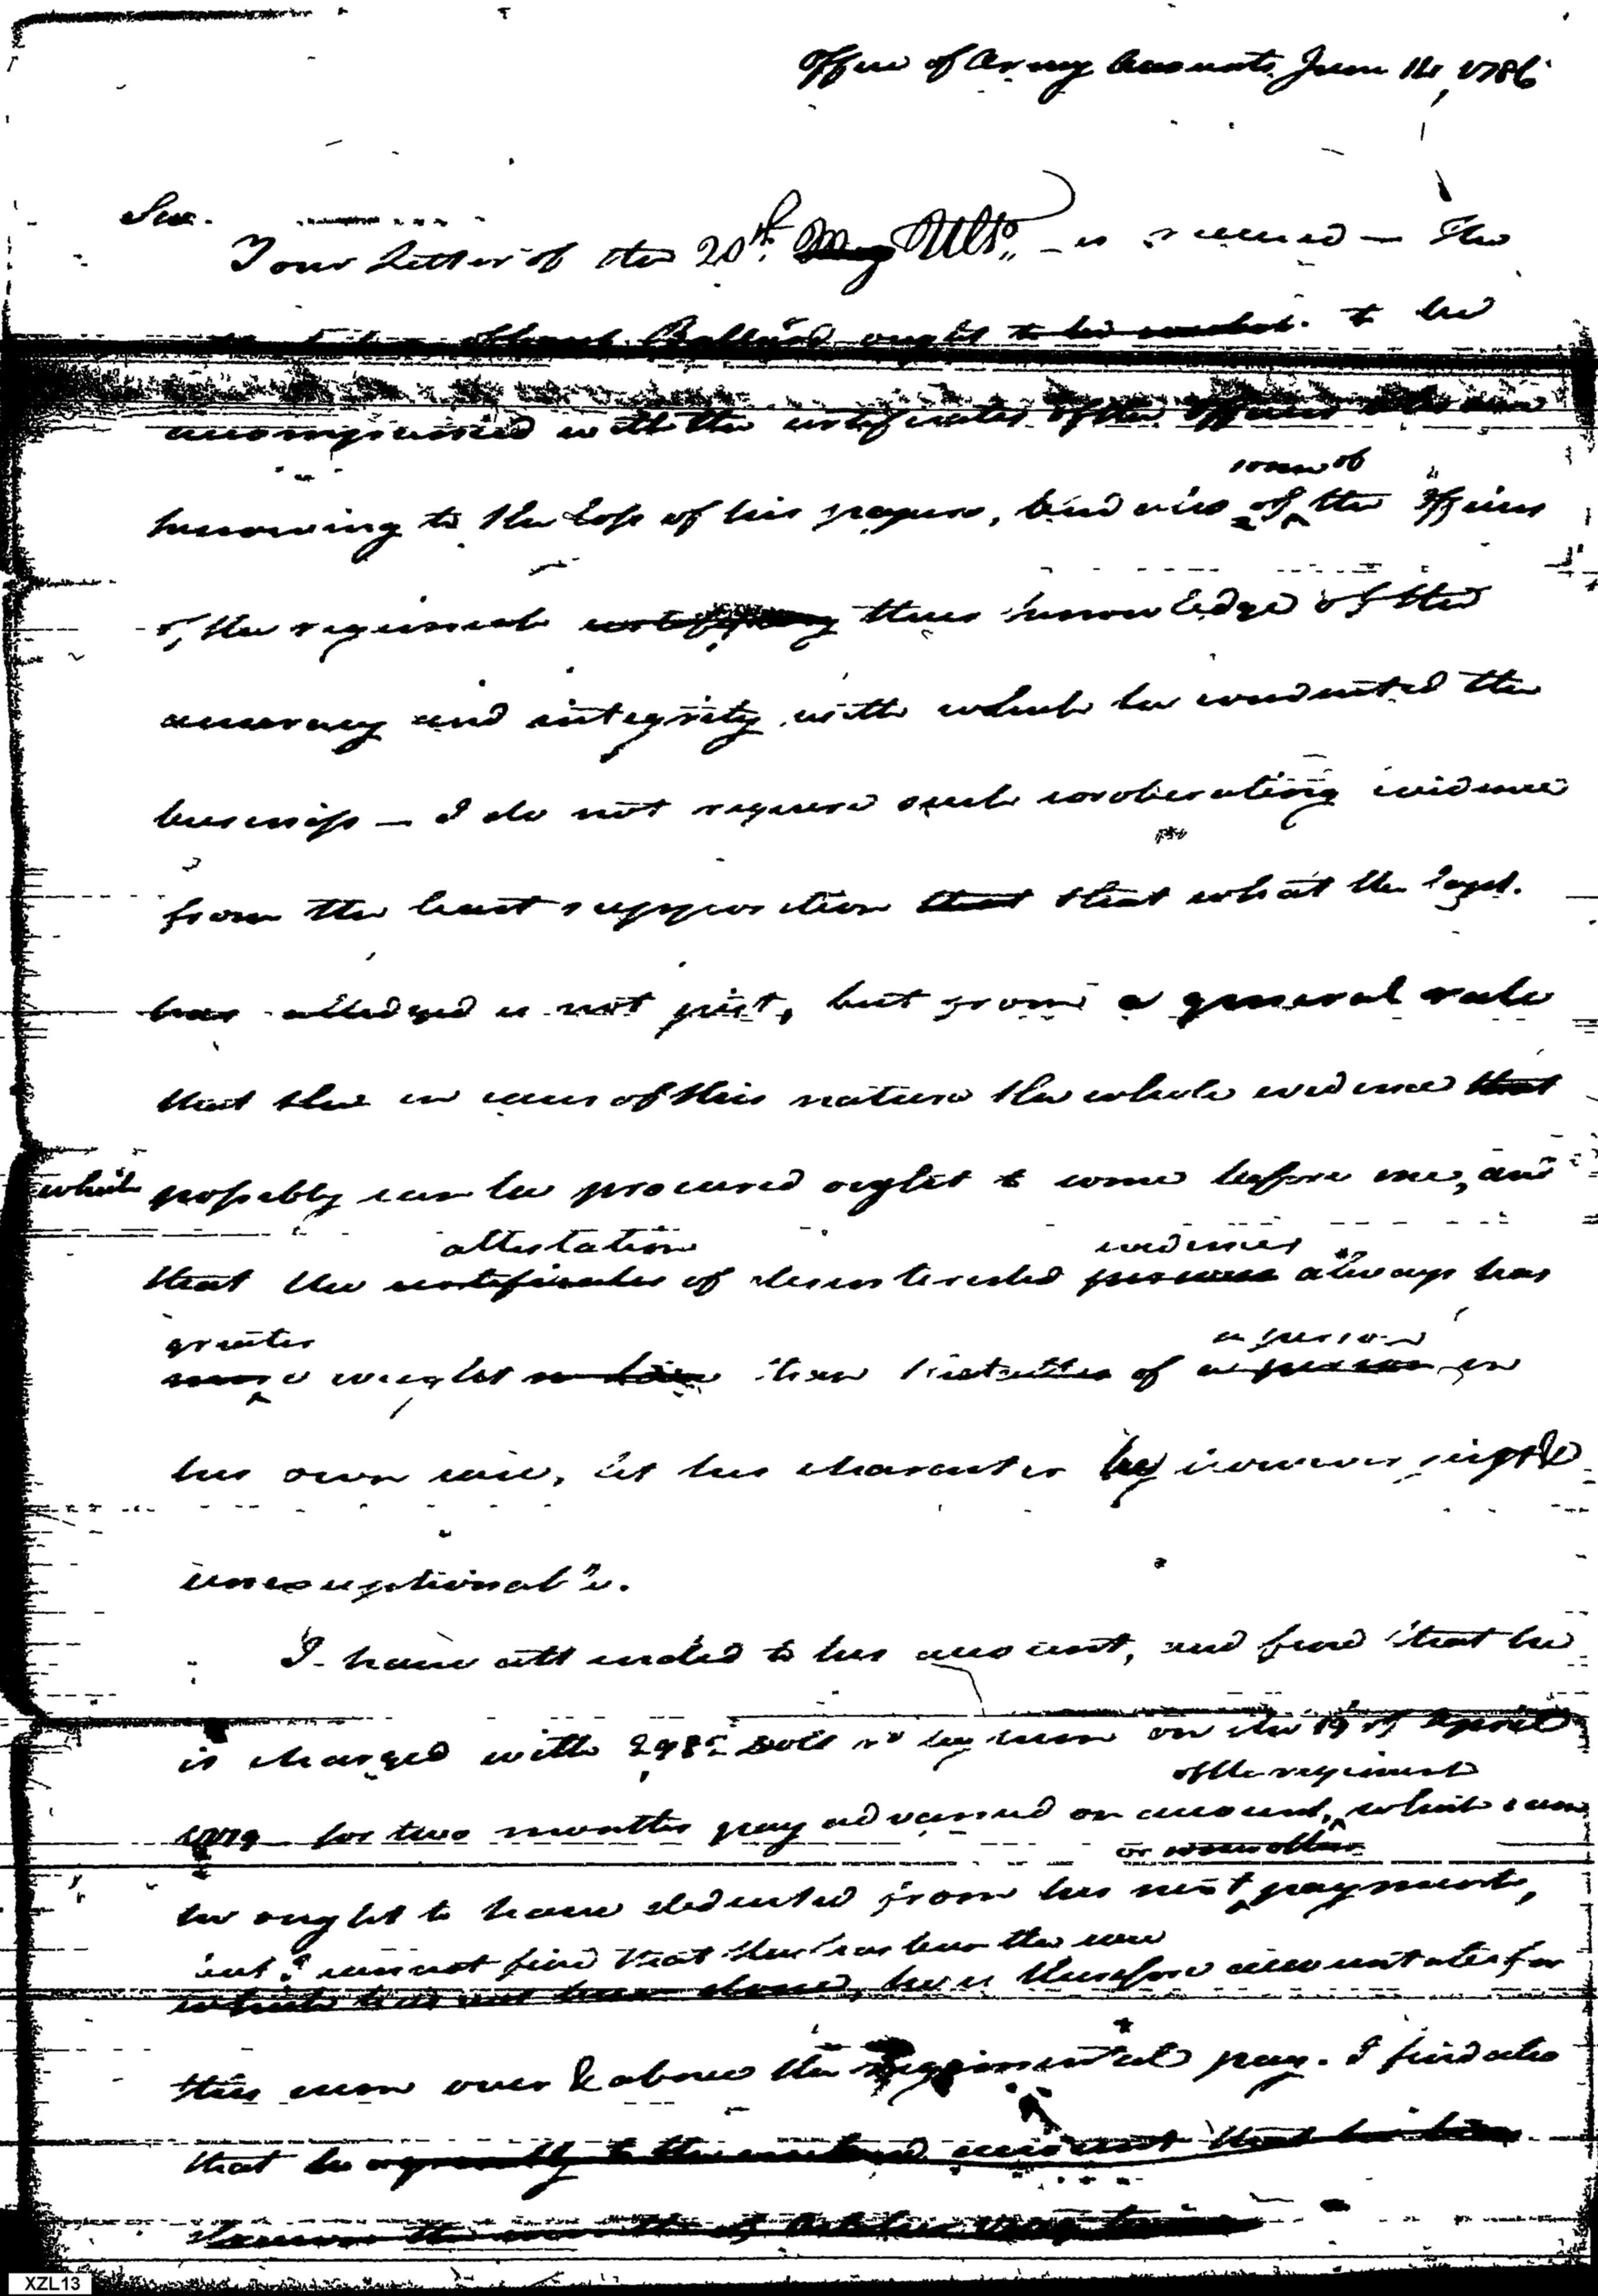 Office of Army Accounts June 14, 1786
Sir.
Your Letter of the 20th. May Ulto,, - is received — The
Ballard ought to be to be
accompanied with the certificates of the officers who are
some of
knowing to the loss of his papers, and also of the officers
of the regiment certifying their knowledge of the
accuracy and integrity with which he conducted the
business — I do not require such corroberating evidence
from the least supposition that that what the Capt.
has alledged is not just, but from a general rule
that the in cases of this nature the whole evidence that
which possebly can be procured ought to come before me, and
attestation evidences
that the certificates of desinterested persons always has
greater a person
more weight than that of a person in
his own case, let his character be however
unexceptionable.
I have attended to his account, and find that he
is charged with 298 Doll by him on the 19 of April
of the regiment
1779 for two months pay advanced on account, which sum
or some other
he ought to have deducted from his next payment,
but I cannot find that this has been the case
which has not been done, he is therefore accountable for
this sum over & above the regimental pay. I find also
that he agreeably to the account that he has
the month of October
XZL13